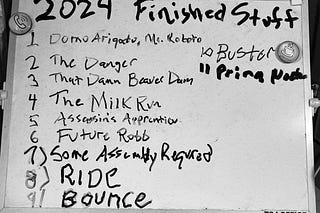 2024 Finished Stuff
1 Domo Arigato, Mr. Roboto
2 The Danger
3 That Damn Beaver Dam
4 The Milk Run
5 Assassin's Apprentice
6 Future Robb
7) Some Assembly Required
8) RIDE
9) Bounce
10 Buster
11 Prima